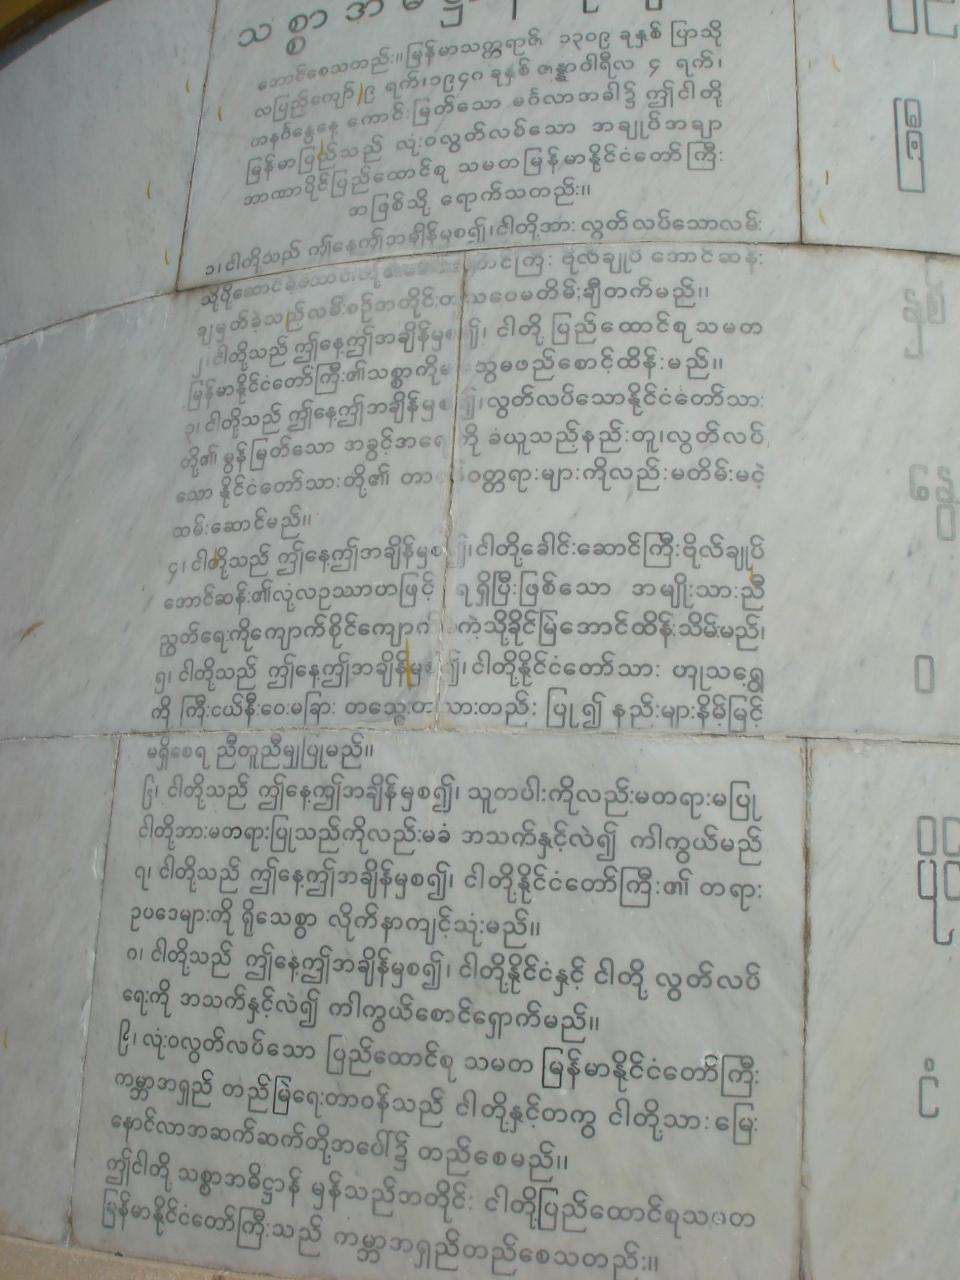 သစ္စာအဓိဋ္ဌာန်
အောင်စေသတည်း။ မြန်မာသက္ကရာဇ် ၁၃၀၉ ခုနှစ် ပြာသို
လပြည့်ကျော် ၉ ရက်၊ ၁၉၄၈ ခုနှစ် ဇန္နဝါရီလ ၄ ရက်၊
တနင်္ဂနွေနေ့ ကောင်းမြတ်သော မင်္ဂလာအခါ၌ ဤငါတို့
မြန်မာပြည်သည် လုံးဝလွတ်လပ်သော အချုပ်အချာ
အာဏာပိုင်ပြည်ထောင်စု သမတမြန်မာနိုင်ငံတော်ကြီး
အဖြစ်သို့ ရောက်သတည်း။
၁၊ ငါတို့သည် ဤနေ့ဤအချိန်မှစ၍၊ ငါတို့အား လွတ်လပ်သောလမ်း
သို့ပို့ဆောင်ခဲ့သော ငါတို့၏ ခေါင်းဆောင်ကြီး ဗိုလ်ချုပ် အောင်ဆန်း
ချမှတ်ခဲ့သည့်လမ်းစဉ်အတိုင်း တသဝေမတိမ်းချီတက်မည်။
၂၊ ငါတို့သည် ဤနေ့ဤအချိန်မှစ၍၊ ငါတို့ ပြည်ထောင်စု သမတ
မြန်မာနိုင်ငံတော်ကြီး၏သစ္စာကို သွေမဖည်စောင့်ထိန်းမည်။
၃၊ ငါတို့သည် ဤနေ့ဤအချိန်မှစ၍၊ လွတ်လပ်သောနိုင်ငံတော်သား
တို့၏ မွန်မြတ်သော အခွင့်အရေးကို ခံယူသည့်နည်းတူ၊ လွတ်လပ်
သော နိုင်ငံတော်သားတို့၏ တာဝန်ဝတ္တရားများကိုလည်း မတိမ်းမငဲ့
ထမ်းဆောင်မည်။
၄၊ ငါတို့သည် ဤနေ့ဤအချိန်မှစ၍၊ ငါတို့ခေါင်းဆောင်ကြီးဗိုလ်ချုပ်
အောင်ဆန်း၏လုံ့လဥဿာဟဖြင့် ရရှိပြီးဖြစ်သော အမျိုးသားညီ
ညွတ်ရေးကိုကျောက်စိုင်ကျောက်ကဲ့သို့ခိုင်မြဲအောင်ထိန်းသိမ်းမည်၊
၅၊ ငါတို့သည် ဤနေ့ဤအချိန်မှစ၍၊ ငါတို့နိုင်ငံတော်သား ဟူသရွေ့
ကို ကြီးငယ်နီးဝေးမခြား တသွေးတသားတည်း ပြု၍ နည်းများနိမ့်မြင့်
မရှိစေရ ညီတူညီမျှပြုမည်။
၆၊ ငါတို့သည် ဤနေ့ဤအချိန်မှစ၍၊ သူတပါးကိုလည်းမတရားမပြု
ငါတို့အားမတရားပြုသည်ကိုလည်းမခံ အသက်နှင့်လဲ၍ ကါကွယ်မည်
၇၊ ငါတို့သည် ဤနေ့ဤအချိန်မှစ၍၊ ငါတို့နိုင်ငံတော်ကြီး၏ တရား
ဥပဒေများကို ရိုသေစွာ လိုက်နာကျင့်သုံးမည်။
၈၊ ငါတို့သည် ဤနေ့ဤအချိန်မှစ၍၊ ငါတို့နိုင်ငံနှင့် ငါတို့ လွတ်လပ်
ရေးကို အသက်နှင့်လဲ၍ ကါကွယ်စောင့်ရှောက်မည်။
၉၊ လုံးဝလွတ်လပ်သော ပြည်ထောင်စု သမတ မြန်မာနိုင်ငံတော်ကြီး
ကမ္ဘာအရှည် တည်မြဲရေးတာဝန်သည် ငါတို့နှင့်တကွ ငါတို့သားမြေး
နောင်လာအဆက်ဆက်တို့အပေါ်၌ တည်စေမည်။
ဤငါတို့ သစ္စာအဓိဋ္ဌာန် မှန်သည့်အတိုင်း ငါတို့ပြည်ထောင်စုသမတ
မြန်မာနိုင်ငံတော်ကြီးသည် ကမ္ဘာအရှည်တည်စေသတည်း။